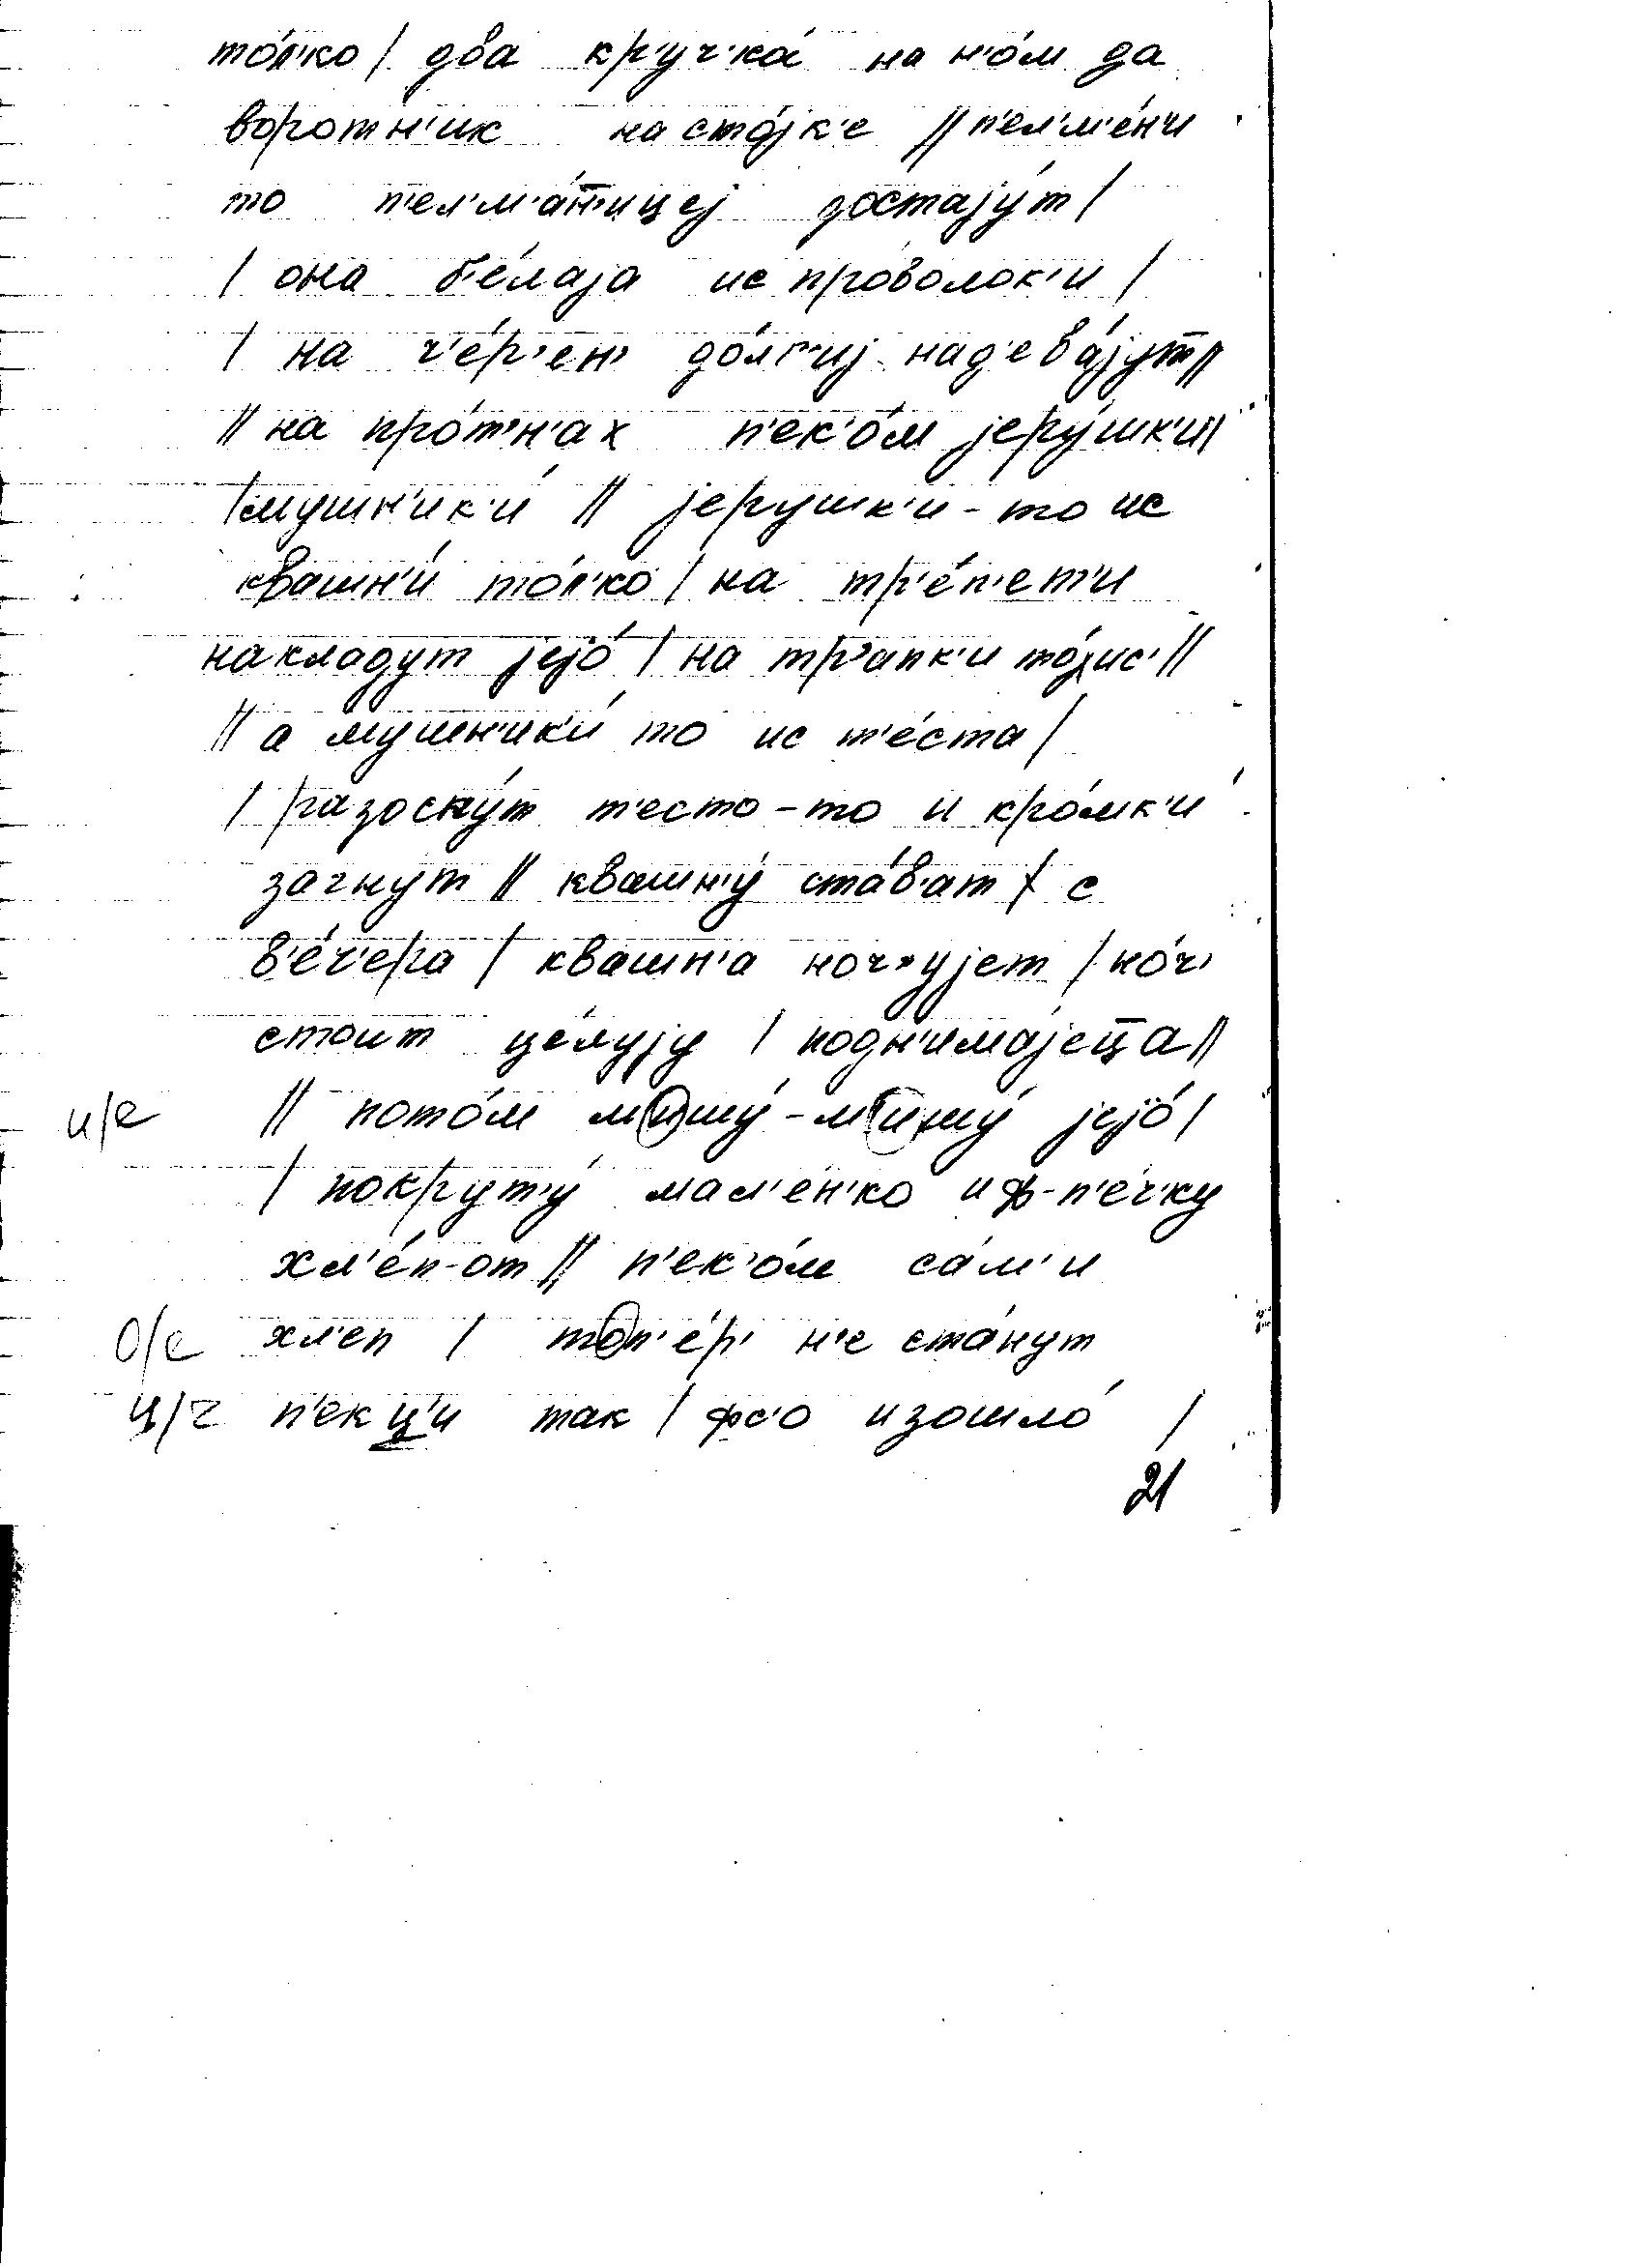 то́л'ко / два кр'уч'ка́ на н'о́м да
воротн'ик на сто́jк'е // п'ел'м'е́н'и
то п'ел'м'а́н'ицеj достаjу́т /
/ она б'е́лаjа ис про́волок'и /
/ на ч'е́р'ен' до́лг'иj над'ева́jут //
// на про́т'н'ах п'ек'о́м jеру́шк'и //
/ мушн'ик'и́ // jерушк'и-то ис
квашн'и́ то́л'ко / на тр'е́п'ет'и
накладут jеjо́ / на тр'апк'и то́јис' //
// а мушн'ик'и́ то ис т'е́ста /
/ разоскну́т т'есто-то и кро́мк'и
загнут // квашн'у́ ста́в'ат / с
в'е́ч'ера / квашн'а ноч'уjет / но́ч'
стоит це́луjу / подн'има́jеца //
и/е // пото́м м'ишу́-м'ишу́ jеjо́ /
/ покрут'у́ мал'ен'ко и ф-п'е́ч'ку
хл'е́п-от // п'ек'о́м са́м'и
о/е хл'еп / топ'е́р' н'е ста́нут
ц/ч п'екц'и так / фс'о изошло́ /
21